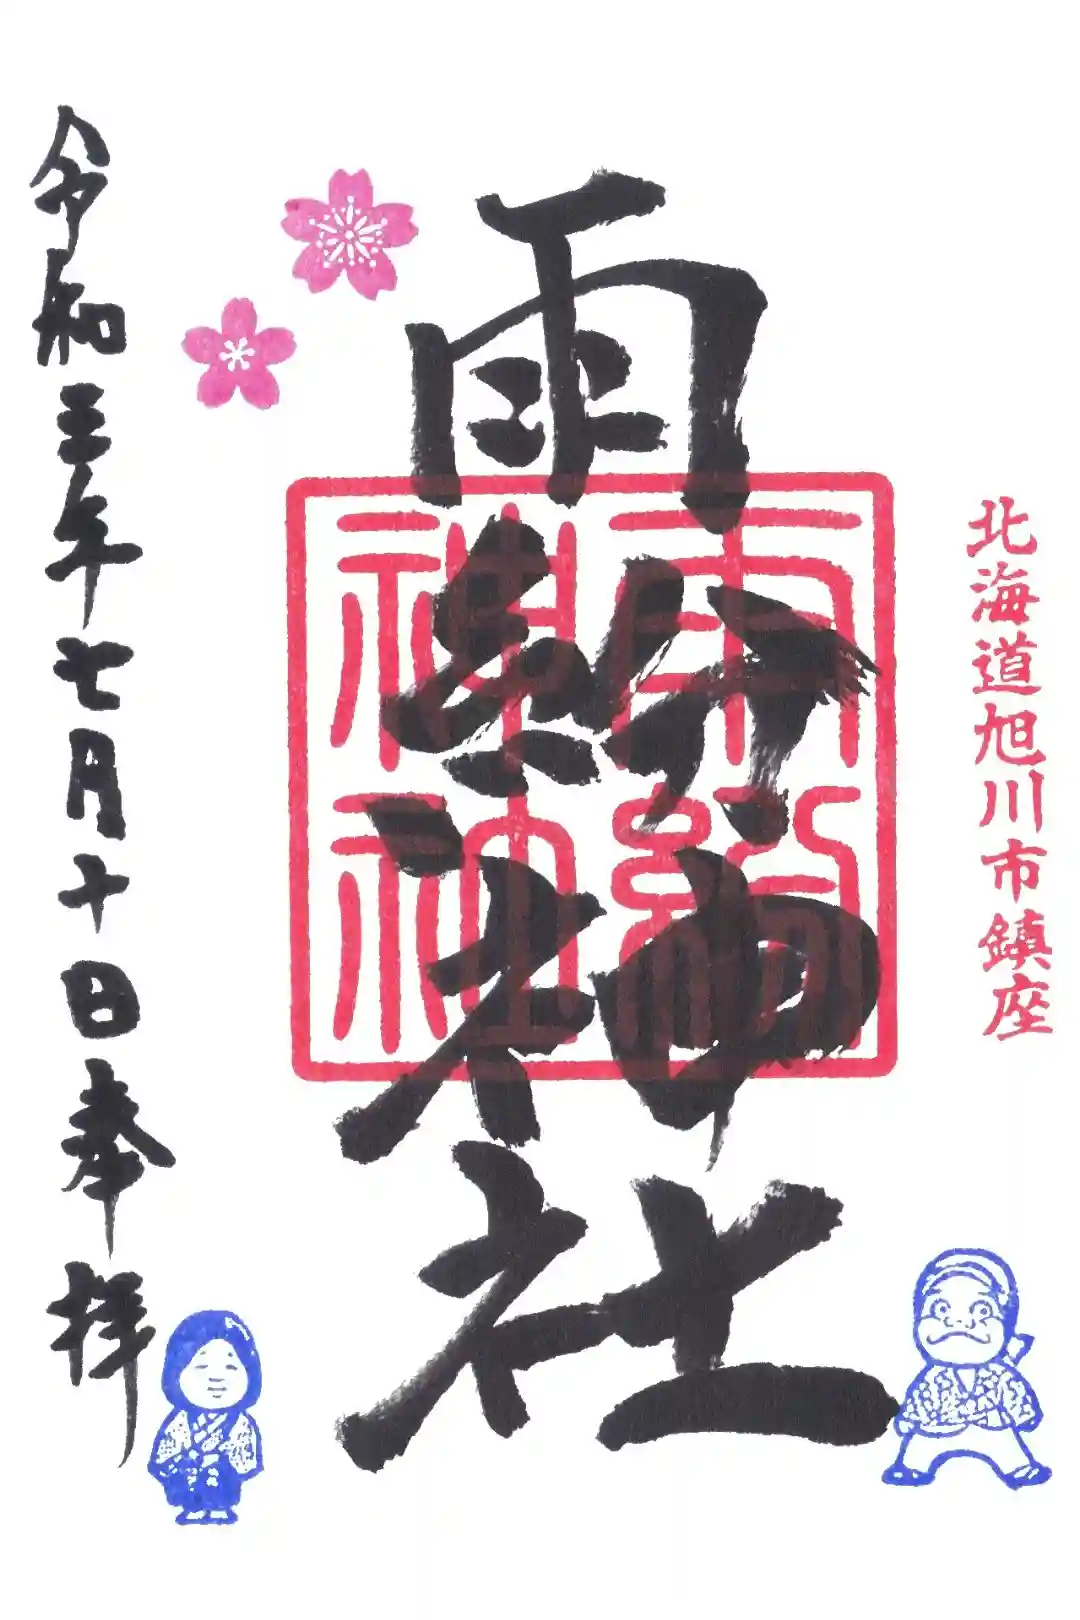 北海道旭川市鎮座
雨紛神社
雨紛神社神
令和三年七月十日奉拝